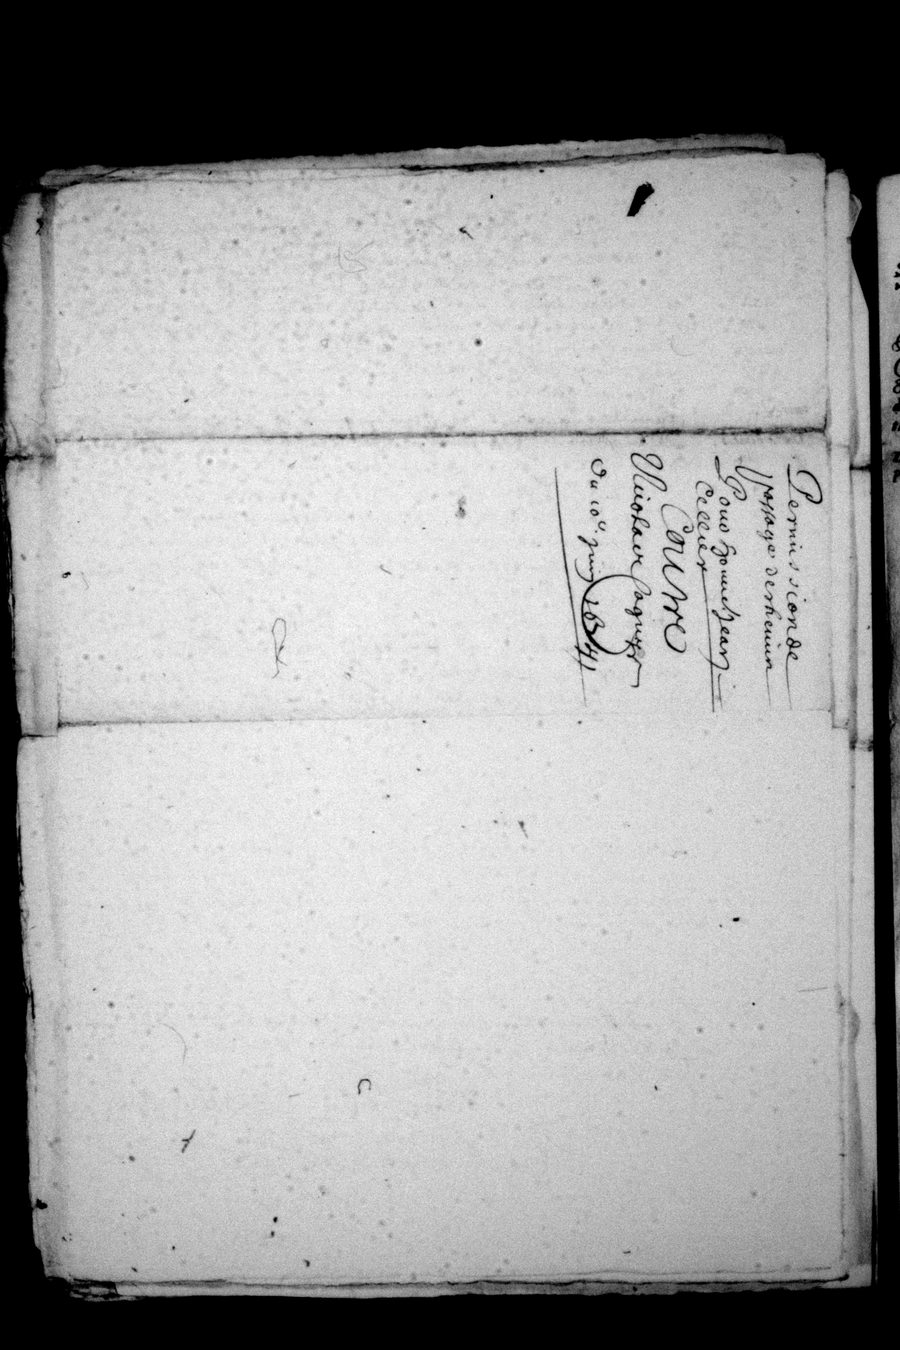 Permission de
passage de chemin
Pour honne Jean
Cellier
Contre
Nicolas Jaquier
Du 10e. juin 1641